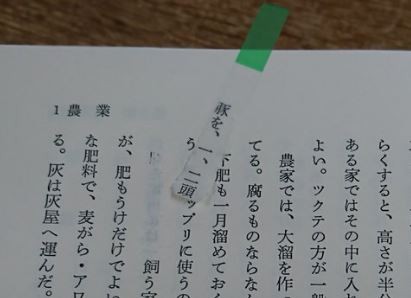 1 農 業
らくすると、高さが半分
ある家ではその中に入
よい。ツクテの方が一
農家では、大溜を作
てる。腐るものならな
下肥も一月溜めておく
う
ップリに使うの
豚を、一、二頭
飼う
が、肥もうけだけでよ
な肥料で、麦がら・アワ
る。灰は灰屋へ運んだ。